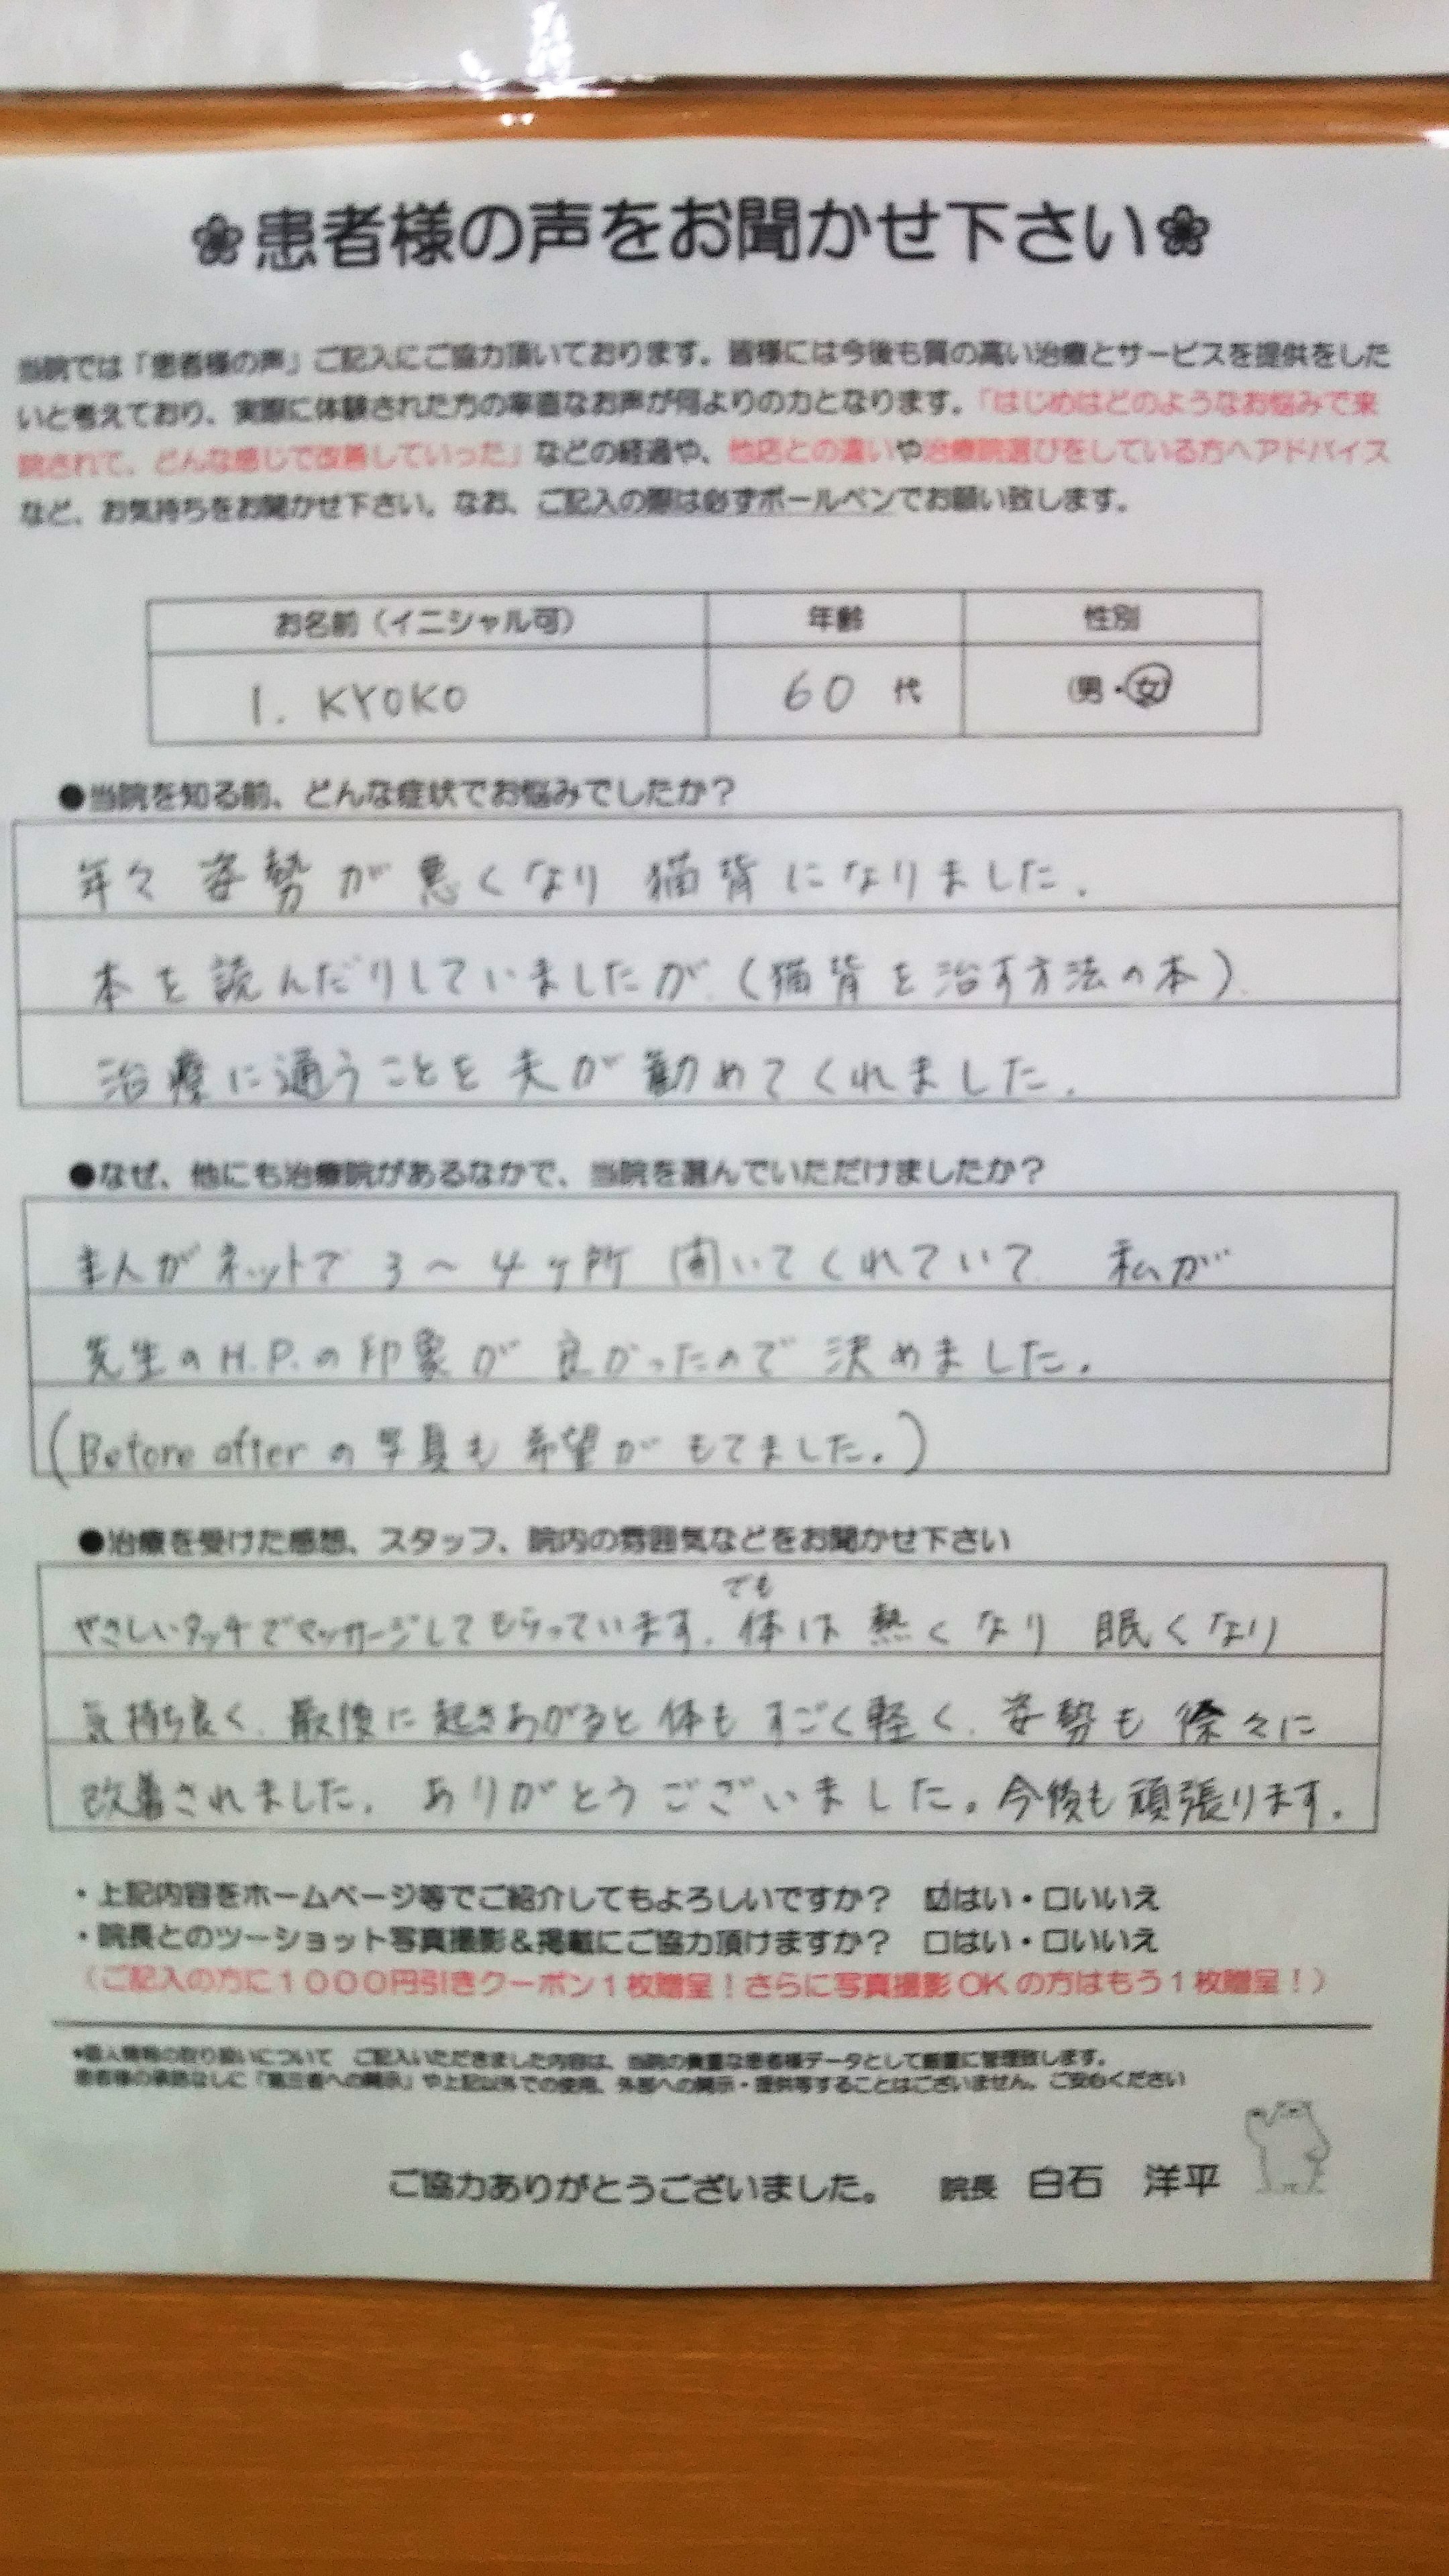 ❀患者様の声をお聞かせ下さい❀
当院では「患者様の声」ご記入にご協力頂いております。皆様には今後も質の高い治療とサービスを提供をした
いと考えており、実際に体験された方の率直なお声が何よりの力となります。「はじめはどのようなお悩みで来
院されて、どんな感じで改善していった」などの経過や、他店との違いや治療院選びをしている方へアドバイス
など、お気持ちをお聞かせ下さい。なお、ご記入の際は必ずボールペンでお願い致します。
お名前（イニシャル可） 年齢 性別
I. KYOKO 60 代 (男・女)
●当院を知る前、どんな症状でお悩みでしたか？
年々 姿勢が悪くなり 猫背になりました。
本を読んだりしていましたが（猫背を治す方法の本）
治療に通うことを夫が勧めてくれました。
●なぜ、他にも治療院があるなかで、当院を選んでいただけましたか？
主人がネットで 3～4ヶ所 開いてくれていて 私が
先生のH.P.の印象が良かったので決めました。
(Before afterの写真も希望がもてました。)
●治療を受けた感想、スタッフ、院内の雰囲気などをお聞かせ下さい
でも
やさしいタッチでマッサージしてもらっています。体は熱くなり 眠くなり
気持ち良く、最後に起きあがると体もすごく軽く、姿勢も徐々に
改善されました。ありがとうございました。今後も頑張ります。
・上記内容をホームページ等でご紹介してもよろしいですか？ ☑はい・□いいえ
・院長とのツーショット写真撮影＆掲載にご協力頂けますか？ □はい・□いいえ
（ご記入の方に１０００円引きクーポン１枚贈呈！さらに写真撮影OKの方はもう１枚贈呈！）
*個人情報の取り扱いについて ご記入いただきました内容は、当院の貴重な患者様データとして厳重に管理致します。
患者様の承諾なしに「第三者への開示」や上記以外での使用、外部への開示・提供等することはございません。ご安心ください
ご協力ありがとうございました。 院長 白石 洋平